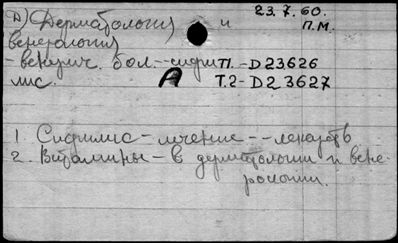 23.7.60.
Д) Дерматология и П.М.
венерология
- венерич. бол. - сифи Т1. - D23626
лис. А Т.2 - D23627
1. Сифилис - лечение - - лекарств
2. Витамины - в дерматологии и вене-
рологии.